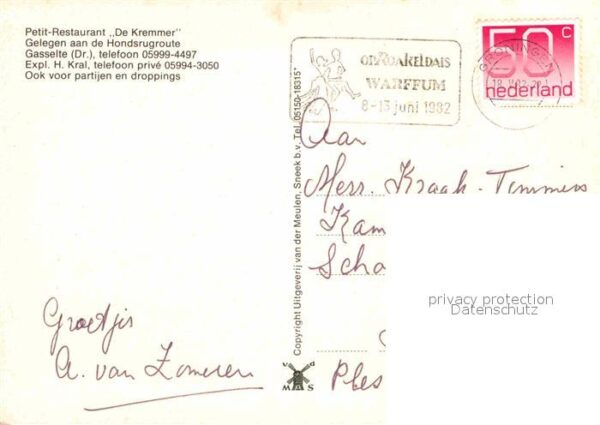 Petit-Restaurant „De Kremmer"
Gelegen aan de Hondsrugroute
Gasselte (Dr.), telefoon 05999-4497
Expl. H. Kral, telefoon privé 05994-3050
Ook voor partijen en droppings
WARFFUM
8-13 juni 1982
GRONINGEN
50 c
nederland
Copyright Uitgeverij van der Meulen, Sneek b.v. Tel. 05150-18315*
Aan
Kraak-Timmers
Kam
Scho
privacy protection
Datenschutz
Groetjes
A. van Zomeren
v d
M S